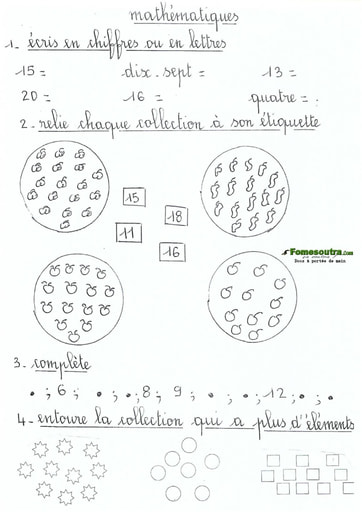 mathématiques
1. écris en chiffres ou en lettres
15 = dix-sept = 13 =
20 = 16 = quatre =
2. relie chaque collection à son étiquette
15
18
11
16
Fomesoutra.com
Docs à portée de main
3. complète
. ; 6 ; . ; . ; 8 ; 9 ; . ; . ; 12 ; . ; .
4. entoure la collection qui a plus d'éléments